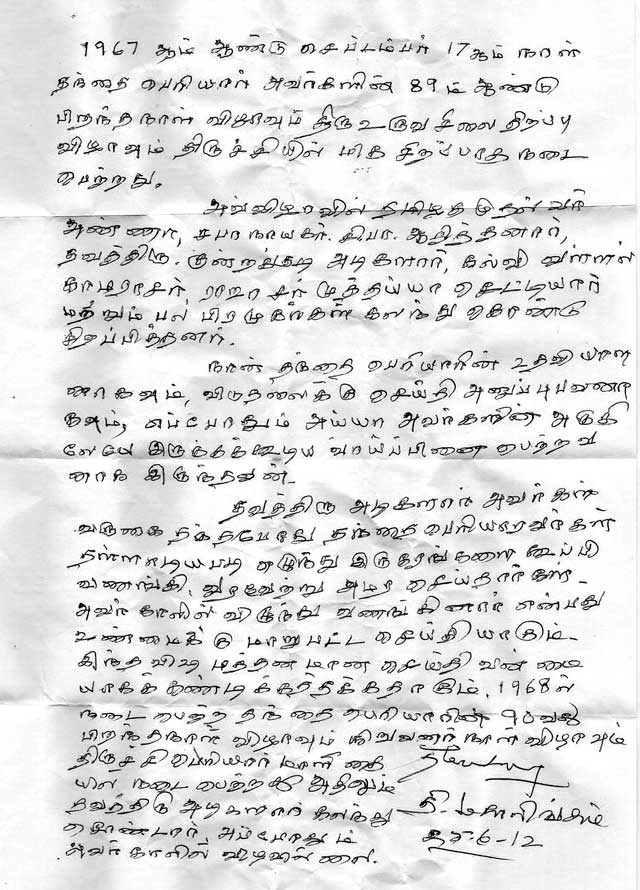 1967 ஆம் ஆண்டு செப்டம்பர் 17 ஆம் நாள்
தந்தை பெரியார் அவர்களின் 89ம் ஆண்டு
பிறந்தநாள் விழாவும் திரு உருவ சிலை திறப்பு
விழாவும் திருச்சியில் மிக சிறப்பாக நடை
பெற்றது.
அவ்விழாவில் தமிழக முதல்வர்
அண்ணா, சபாநாயகர். சி.பா. ஆதித்தனார்,
தவத்திரு. குன்றக்குடி அடிகளார், கல்வி வள்ளல்
காமராசர், ராஜா சர் முத்தய்யா செட்டியார்
மற்றும் பல பிரமுகர்கள் கலந்து கொண்டு
சிறப்பித்தனர்.
நான் தந்தை பெரியாரின் உதவியாள
னாகவும், விடுதலைக்கு செய்தி அனுப்புபவனா
கவும், எப்போதும் அய்யா அவர்களின் அருகி
லேயே இருக்கக்கூடிய வாய்ப்பினை பெற்றவ
னாக இருந்தவன்.
தவத்திரு அடிகளார் அவர்கள்
வருகை தந்தபோது தந்தை பெரியாரவர்கள்
தள்ளாடியபடி எழுந்து இருகரங்களை கூப்பி
வணங்கி, வரவேற்று அமர செய்தார்கள்.
அவர் காலில் விழுந்து வணங்கினார் என்பது
உண்மைக்கு மாறுபட்ட செய்தியாகும்.
இந்த விஷமத்தனமான செய்தி வன்மை
யாகக் கண்டிக்கத்தக்கதாகும். 1968ல்
நடைபெற்ற தந்தை பெரியாரின் 90வது
பிறந்தநாள் விழாவும் நிறுவனர் நாள் விழாவும்
திருச்சி பெரியார் மாளிகை
யில் நடைபெற்றது அதிலும்
தவத்திரு அடிகளார் கலந்து
கொண்டார். அப்போதும்
அவர் காலில் விழவில்லை.
தி. மகாலிங்கம்
6-12